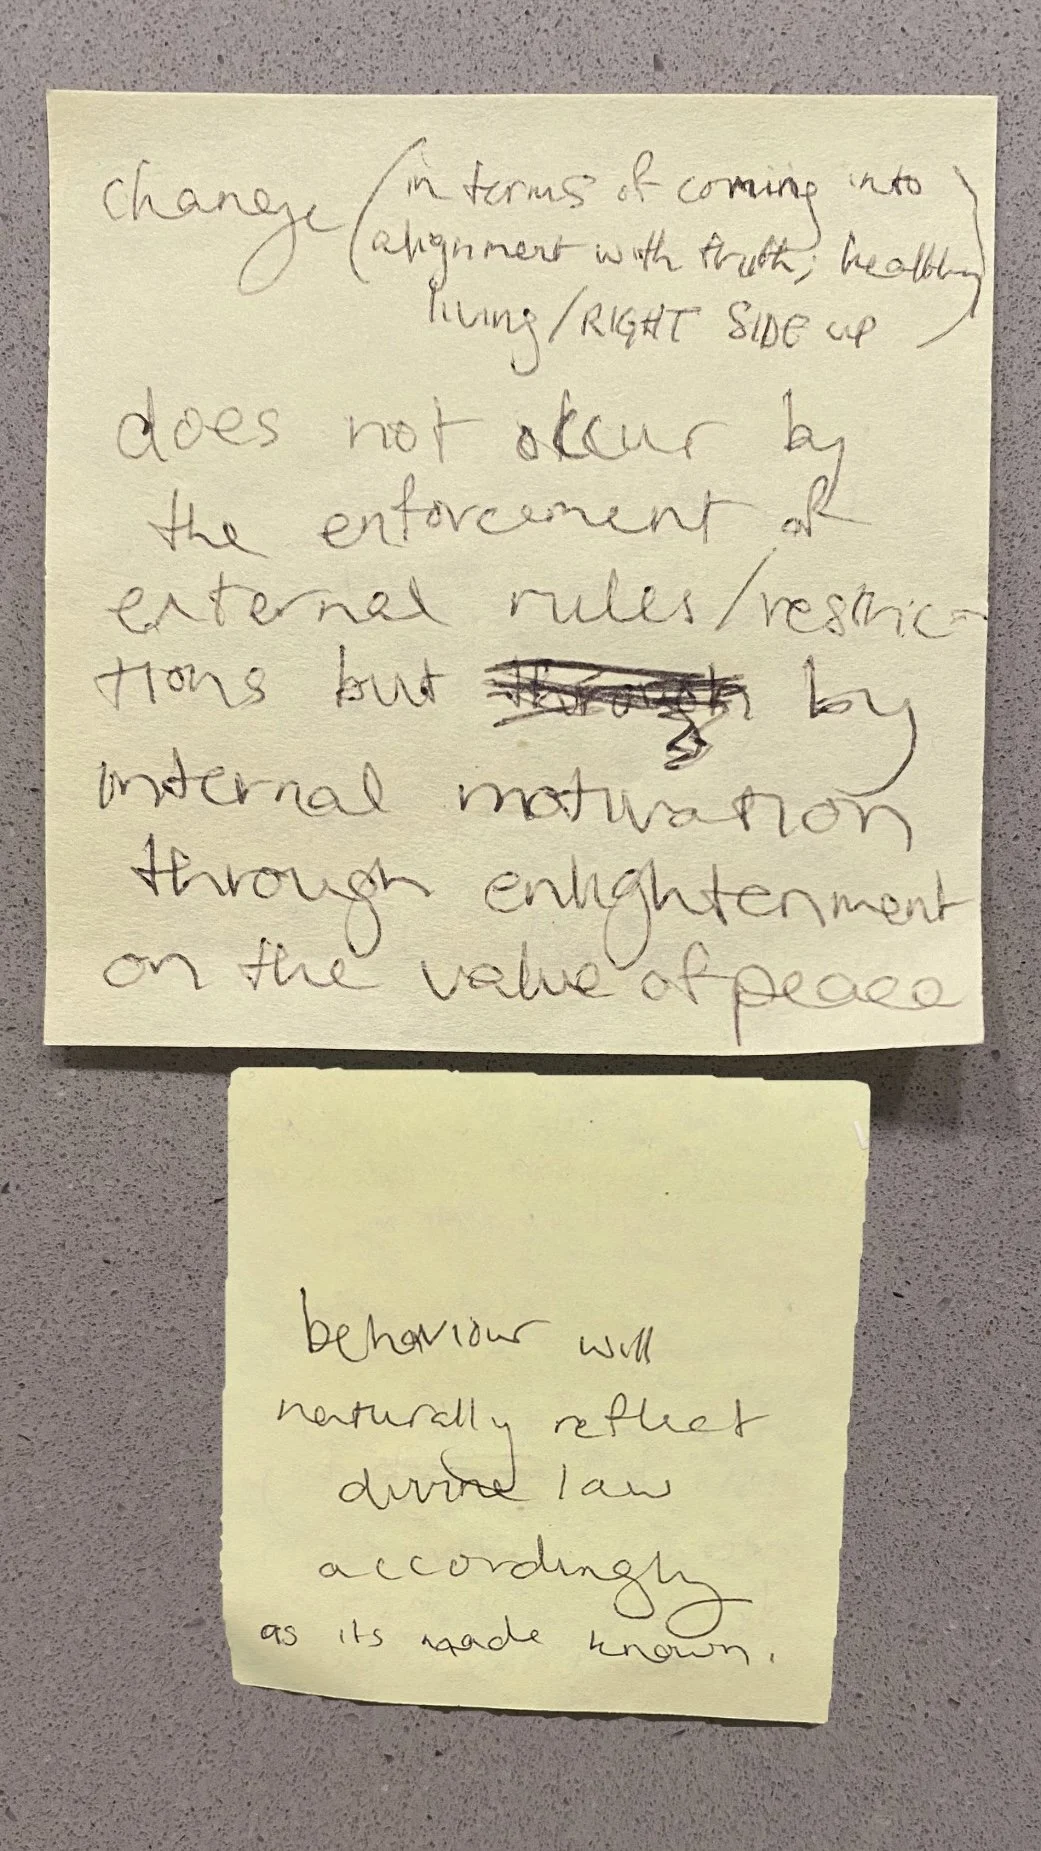 change (in terms of coming into
alignment with truth; healthy
living/RIGHT SIDE up)
does not occur by
the enforcement of
external rules/restric-
tions but by
internal motivation
through enlightenment
on the value of peace
behaviour will
naturally reflect
divine law
accordingly
as its made known.